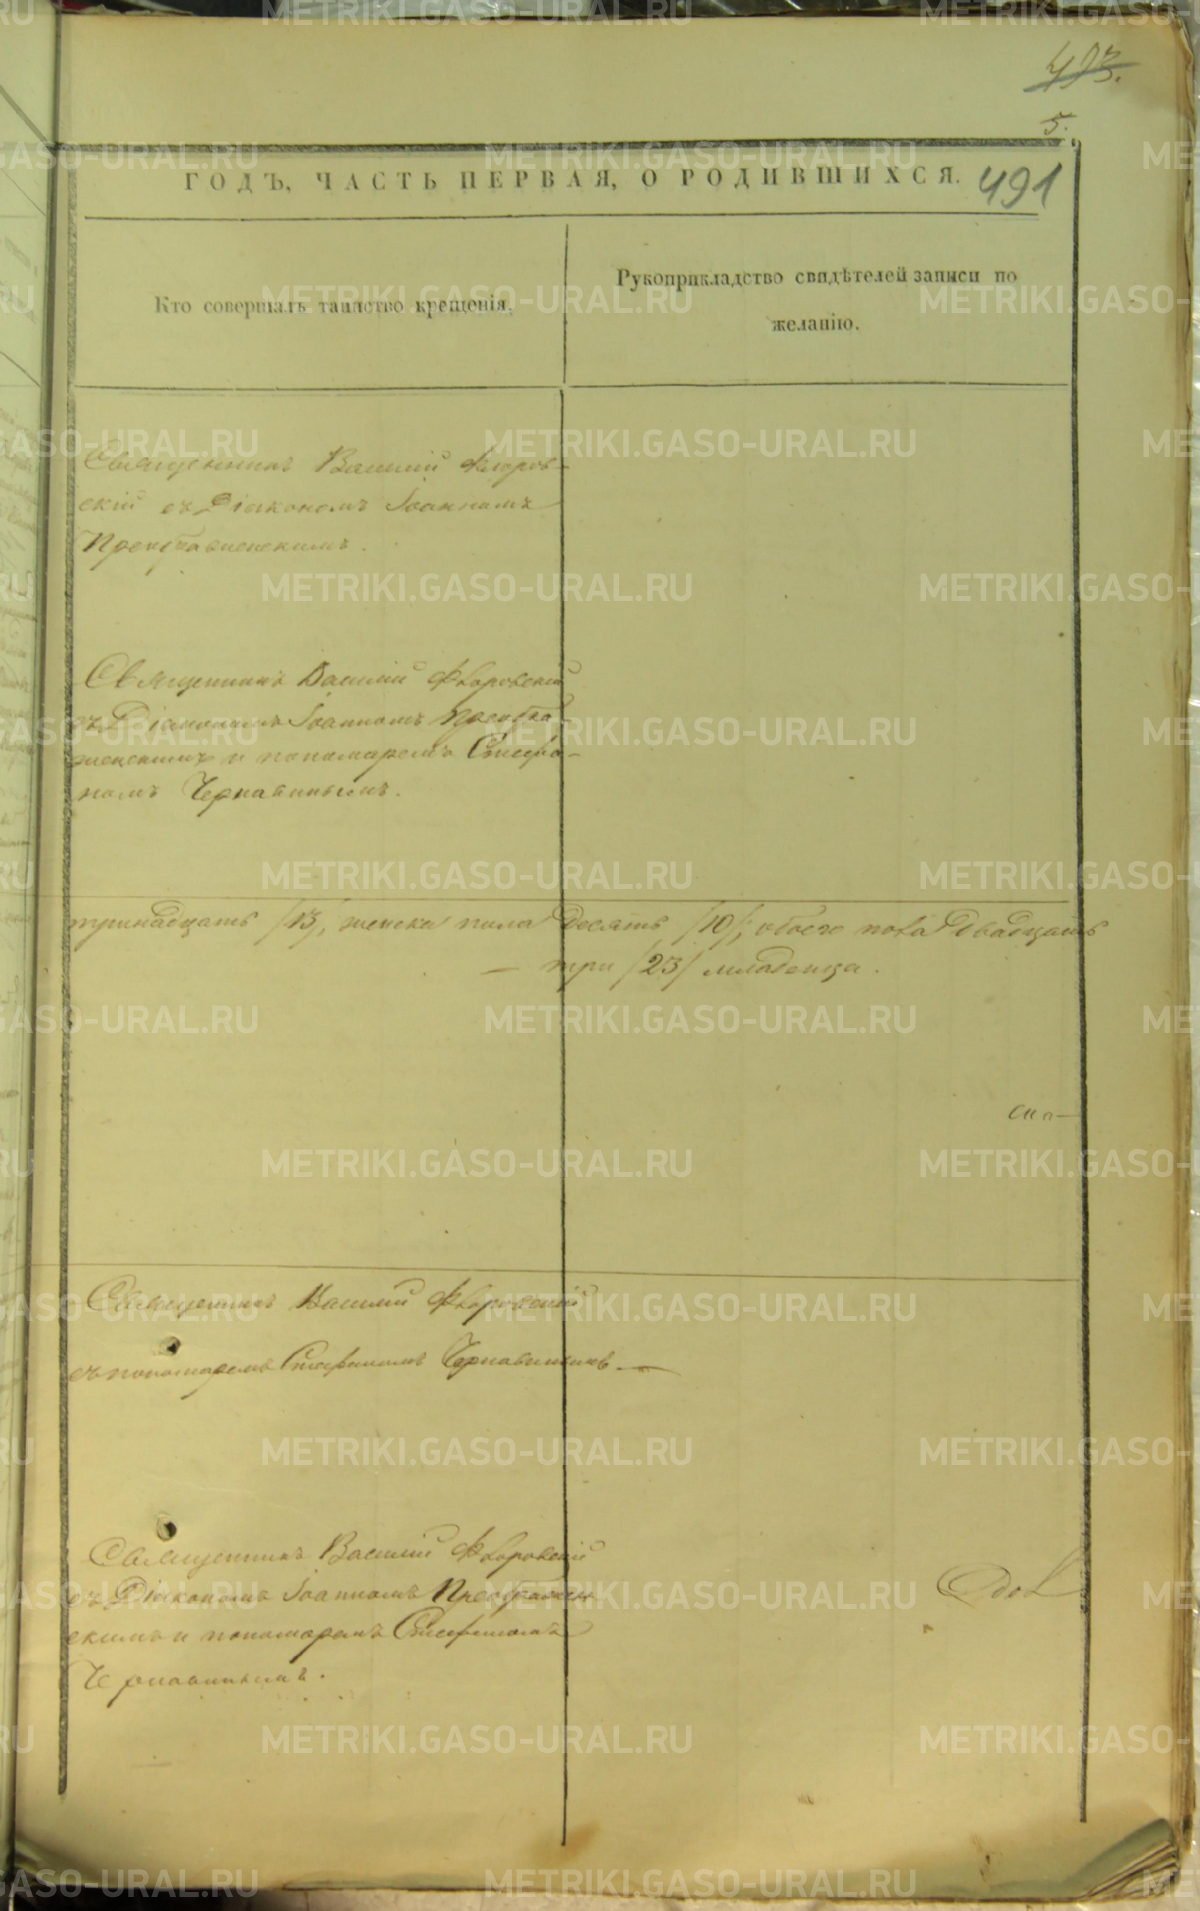 493.
5.
ГОДЪ, ЧАСТЬ ПЕРВАЯ, О РОДИВШИХСЯ. 491
Кто совершалъ таинство крещенія.
Рукоприкладство свидѣтелей записи по
желанію.
Священникъ Василій Флоров-
скій съ Діакономъ Іоанномъ
Преображенскимъ.
Священникъ Василій Флоровскій
съ Діакономъ Іоанномъ Преобра-
женскимъ и пономаремъ Стефа-
номъ Чернавинымъ.
тринадцать /13/, женска пола десять /10/; обоего пола двадцать
три /23/ младенца.
Священникъ Василій Флоровскій
съ пономаремъ Стефаномъ Чернавинымъ.
Священникъ Василій Флоровскій
съ Діакономъ Іоанномъ Преображен-
скимъ и пономаремъ Стефаномъ
Чернавинымъ.
METRIKI.GASO-URAL.RU